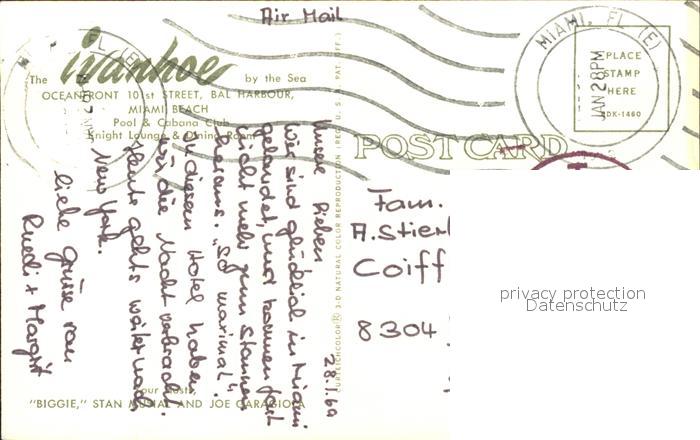 Air Mail
MIAMI, FL (E)
JAN 28 PM
PLACE
STAMP
HERE
DK-1460
The Ivanhoe by the Sea
OCEANFRONT 101st STREET, BAL HARBOUR,
MIAMI BEACH
Pool & Cabana Club
Knight Lounge & Dining Room
POST CARD
28.1.69
Unsere Lieben
Wir sind glücklich in Miami
gelandet, und kommen fast
nicht mehr zum staunen
heraus. "So maximal".
In diesem Hotel haben
wir die Nacht verbracht.
Heute gehts weiter nach
New York.
Liebe Grüsse von
Ruedi + Margrit
Fam.
A. Stierl
Coiff
8304
privacy protection
Datenschutz
3-D NATURAL COLOR REPRODUCTION (REG. U. S. A. PAT. OFF.)
Your Hosts,
"BIGGIE," STAN MUSIAL AND JOE GARAGIOLA